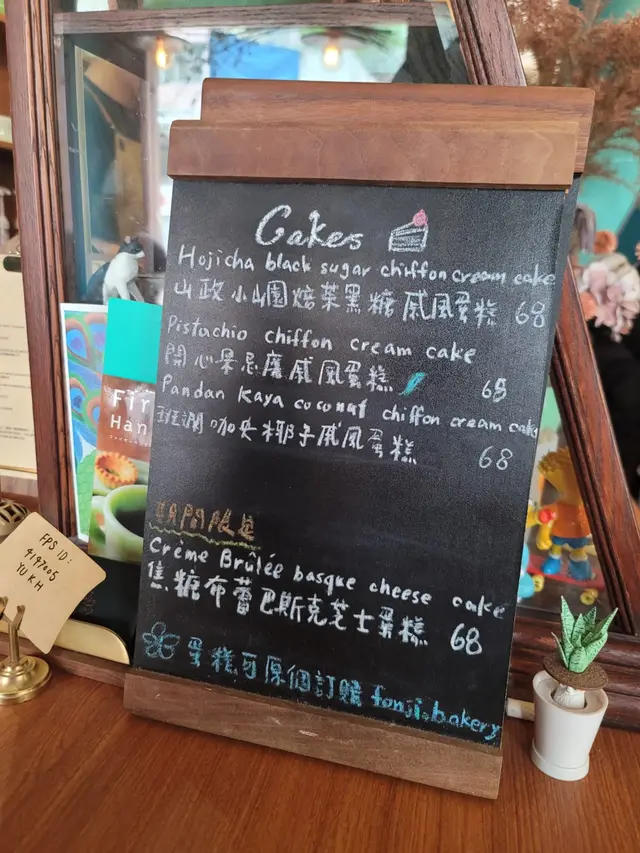 Cakes
Hojicha black sugar chiffon cream cake
山政小山園焙茶黑糖戚風蛋糕 68
Pistachio chiffon cream cake
開心果忌廉戚風蛋糕 68
Pandan Kaya coconut chiffon cream cake
班瀾咖央椰子戚風蛋糕 68
期間限定
Crème Brûlée basque cheese cake
焦糖布蕾巴斯克芝士蛋糕 68
蛋糕可原個訂購 fonji.bakery
FPS ID:
4147005
YU K H
Fir
Han